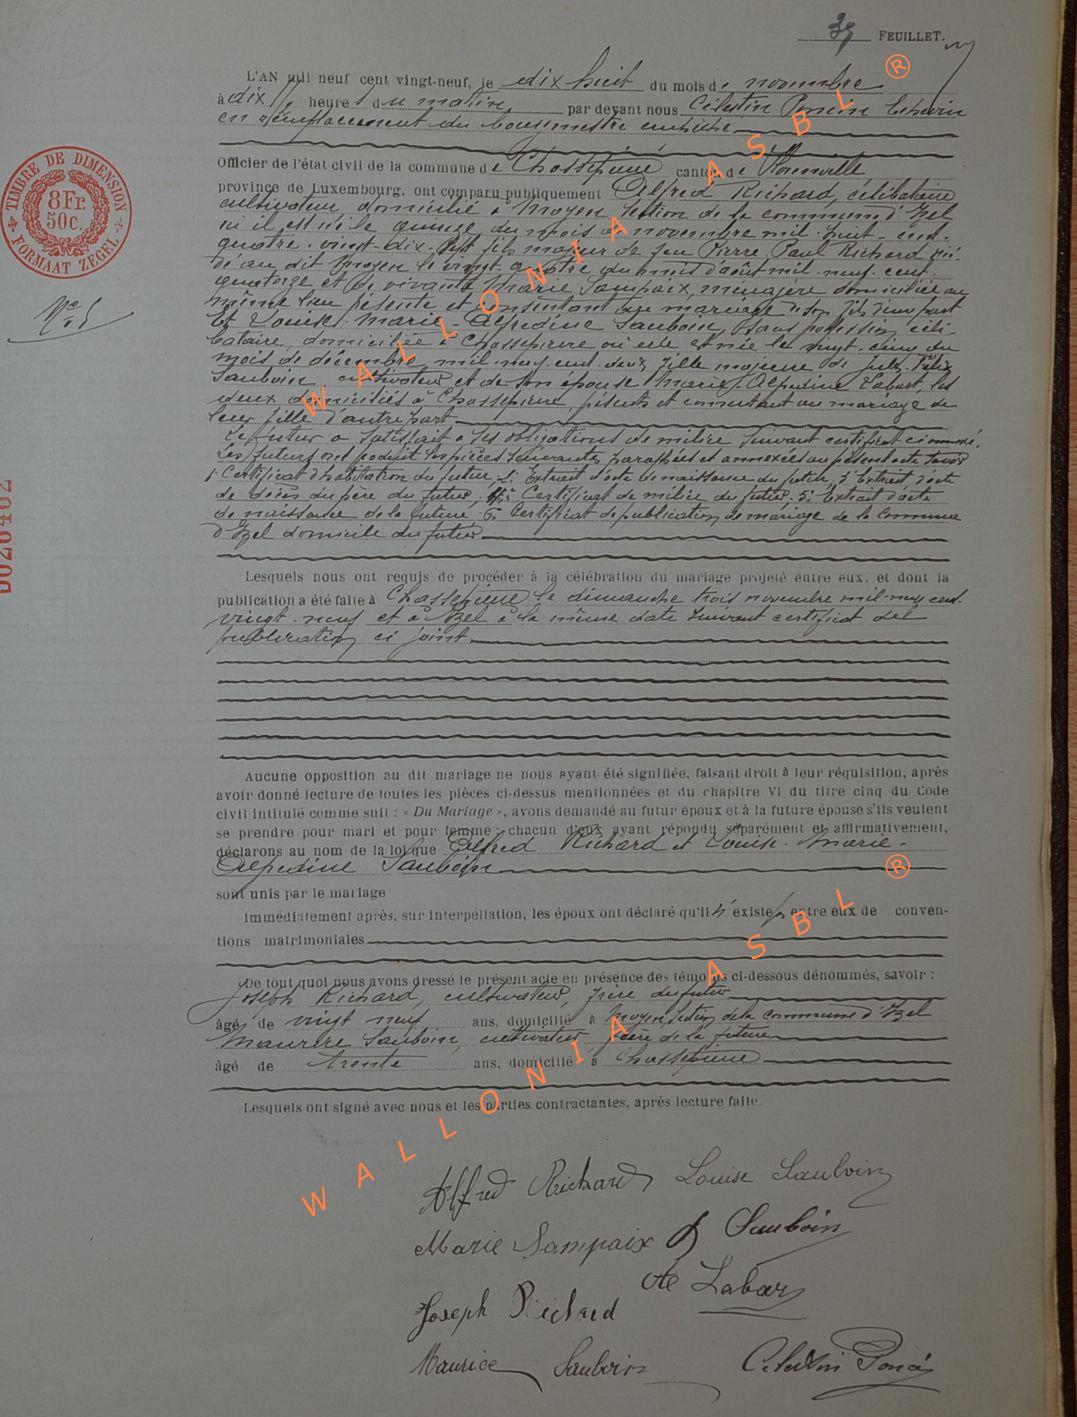 39 FEUILLET.
L'AN mil neuf cent vingt-neuf, le dix huit du mois de novembre
à dix heures du matin, par devant nous Célestin Poncin Echevin
en remplacement du bourgmestre empêché
Officier de l'état civil de la commune de Chassepierre canton de Florenville
province de Luxembourg, ont comparu publiquement Alfred Richard, célibataire
cultivateur domicilié à Moyen section de la commune d'Izel
où il est né le quinze du mois de novembre mil huit cent
quatre-vingt-dix-sept fils majeur de feu Pierre Paul Richard
au dit Moyen le vingt quatre du mois d'août mil neuf cent
quatorze et de vivante Marie Sampaix, ménagère domiciliée au
même lieu présente et consentant au mariage de son fils d'une part
Et Louise-Marie-Alfredine Sauboin, sans profession céli-
bataire, domiciliée à Chassepierre où elle est née le vingt cinq du
mois de décembre mil neuf cent deux fille majeure de
Sauboin cultivateur et de son épouse Marie Alfredine Labart, les
deux domiciliés à Chassepierre, présents et consentant au mariage de
leur fille d'autre part
Le futur a satisfait à ses obligations de milice suivant certificat ci annexé.
Les futurs ont produit les pièces suivantes paraphées et annexées au présent acte savoir
1. Certificat d'habitation du futur 2. Extrait d'acte de naissance du futur, 3. Extrait d'acte
de décès du père du futur, 4. Certificat de milice du futur, 5. Extrait d'acte
de naissance de la future 6. Certificat de publication de mariage de la commune
d'Izel domicile du futur
Lesquels nous ont requis de procéder à la célébration du mariage projeté entre eux, et dont la
publication a été faite à Chassepierre le dimanche trois novembre mil neuf cent
vingt-neuf et à Izel à la même date suivant certificat de
publication ci joint
N° 5
TIMBRE DE DIMENSION
8 Fr.
50c.
FORMAAT ZEGEL
D020402
Aucune opposition au dit mariage ne nous ayant été signifiée, faisant droit à leur réquisition, après
avoir donné lecture de toutes les pièces ci-dessus mentionnées et du chapitre VI du titre cinq du Code
civil intitulé comme suit : « Du Mariage », avons demandé au futur époux et à la future épouse s'ils veulent
se prendre pour mari et pour femme ; chacun d'eux ayant répondu séparément et affirmativement,
déclarons au nom de la loi que Alfred Richard et Louise-Marie-
Alfredine Sauboin
sont unis par le mariage
Immédiatement après, sur interpellation, les époux ont déclaré qu'il n'existe pas entre eux de conven-
tions matrimoniales
De tout quoi nous avons dressé le présent acte en présence des témoins ci-dessous dénommés, savoir :
Joseph Richard, cultivateur, frère du futur
âgé de vingt neuf ans, domicilié à Moyen, section de la commune d'Izel
Maurice Sauboin, cultivateur frère de la future
âgé de trente ans, domicilié à Chassepierre
Lesquels ont signé avec nous et les parties contractantes, après lecture faite.
Alfred Richard Louise Sauboin
Marie Sampaix J Sauboin
Joseph Richard
Maurice Sauboin Célestin Poncin
WALLONIA ASBL ®
WALLONIA ASBL ®